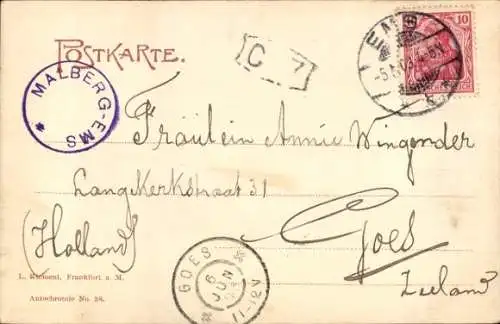 POSTKARTE.
C 7
10
MALBERG-EMS
Fräulein Annie Wingender
Lang Kerkstraat 31
Goes
(Holland)
Zeeland
GOES
6 JUN
11-12V
L. Klement, Frankfurt a. M.
Autochromie No. 38.